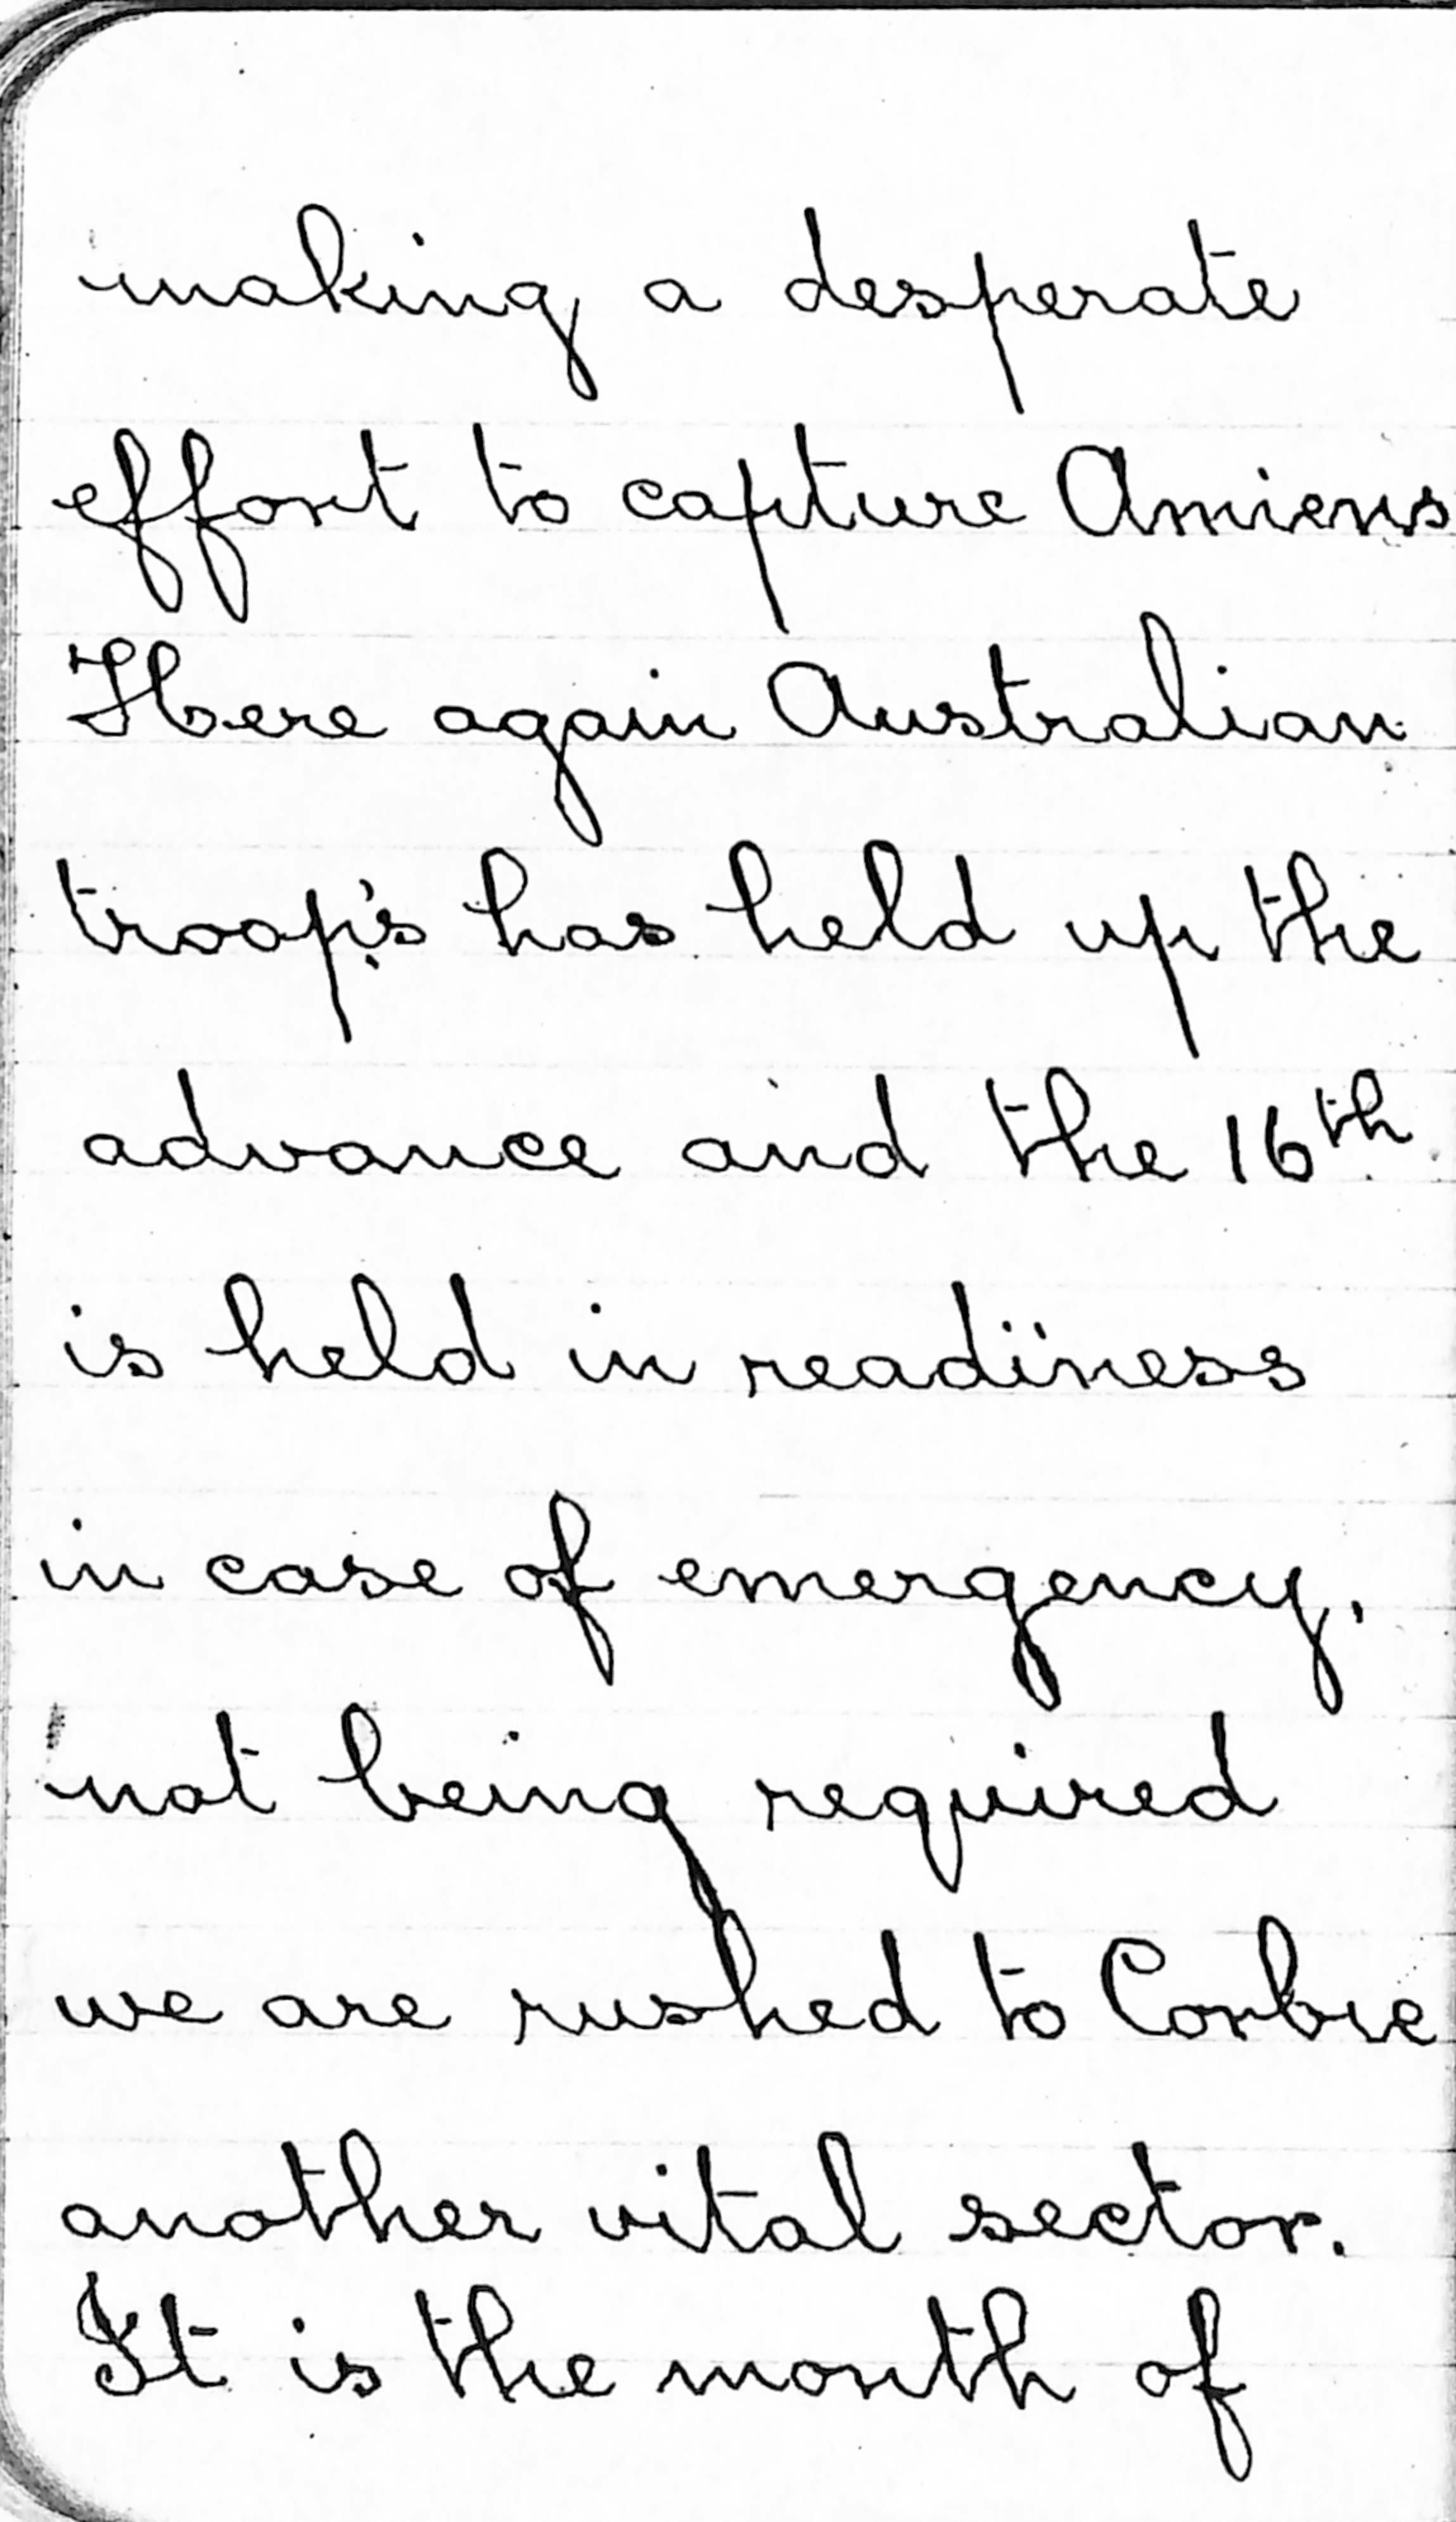 making a desperate
effort to capture Amiens
Here again Australian
troop's has held up the
advance and the 16th
is held in readiness
in case of emergency,
not being required
we are rushed to Corbie
another vital sector.
It is the month of